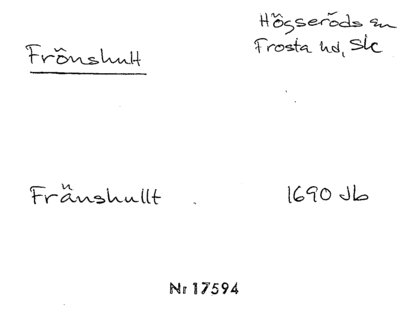 Högseröds sn
Frönshult
Frosta hd, Slc
Fränshullt 1690 Jb
Nr 17594